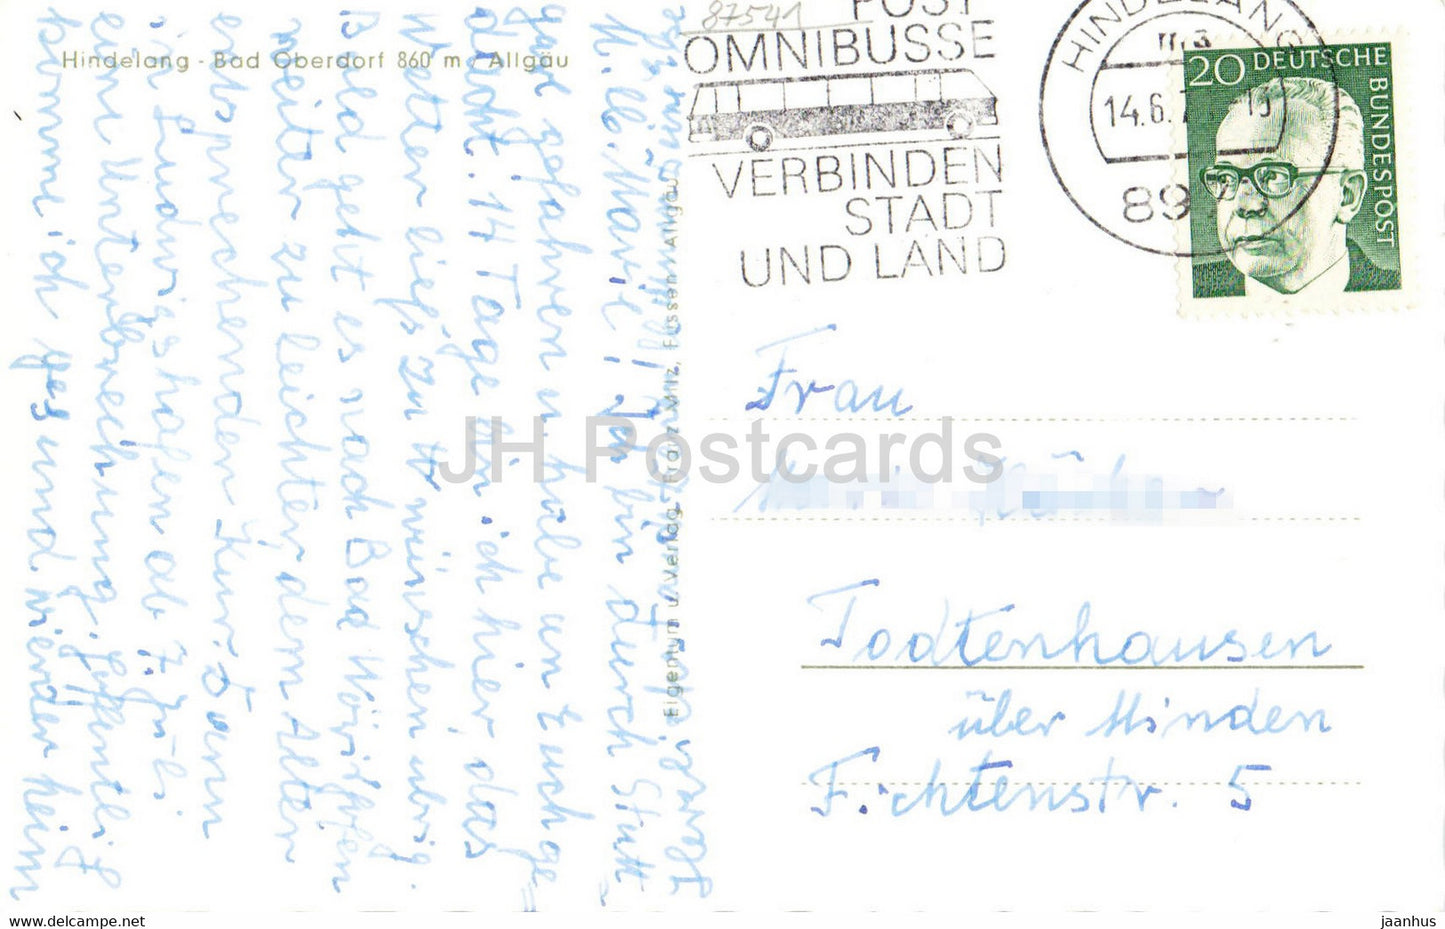 87541
POST
OMNIBUSSE
VERBINDEN
STADT
UND LAND
HINDELANG
14.6.7
897
20 DEUTSCHE
BUNDESPOST
Hindelang - Bad Oberdorf 860 m / Allgäu
Eigentum u. Verlag Franz Milz, Füssen Allgäu
bin durch Stutt-
gart gefahren u. habe an Euch ge-
dacht. 14 Tage bin ich hier das
Wetter ließ zu wünschen übrig.
Bald geht es nach Bad Wörishofen
weiter zu leichter dem Alter
entsprechenden Kur. Dann
in Ludwigshafen ab 7. Juli
eine Unterbrechung, hoffentlich
komme ich gesund wieder heim
Frau
Todtenhausen
über Minden
Fichtenstr. 5
JH Postcards
www.delcampe.net
jaanhus